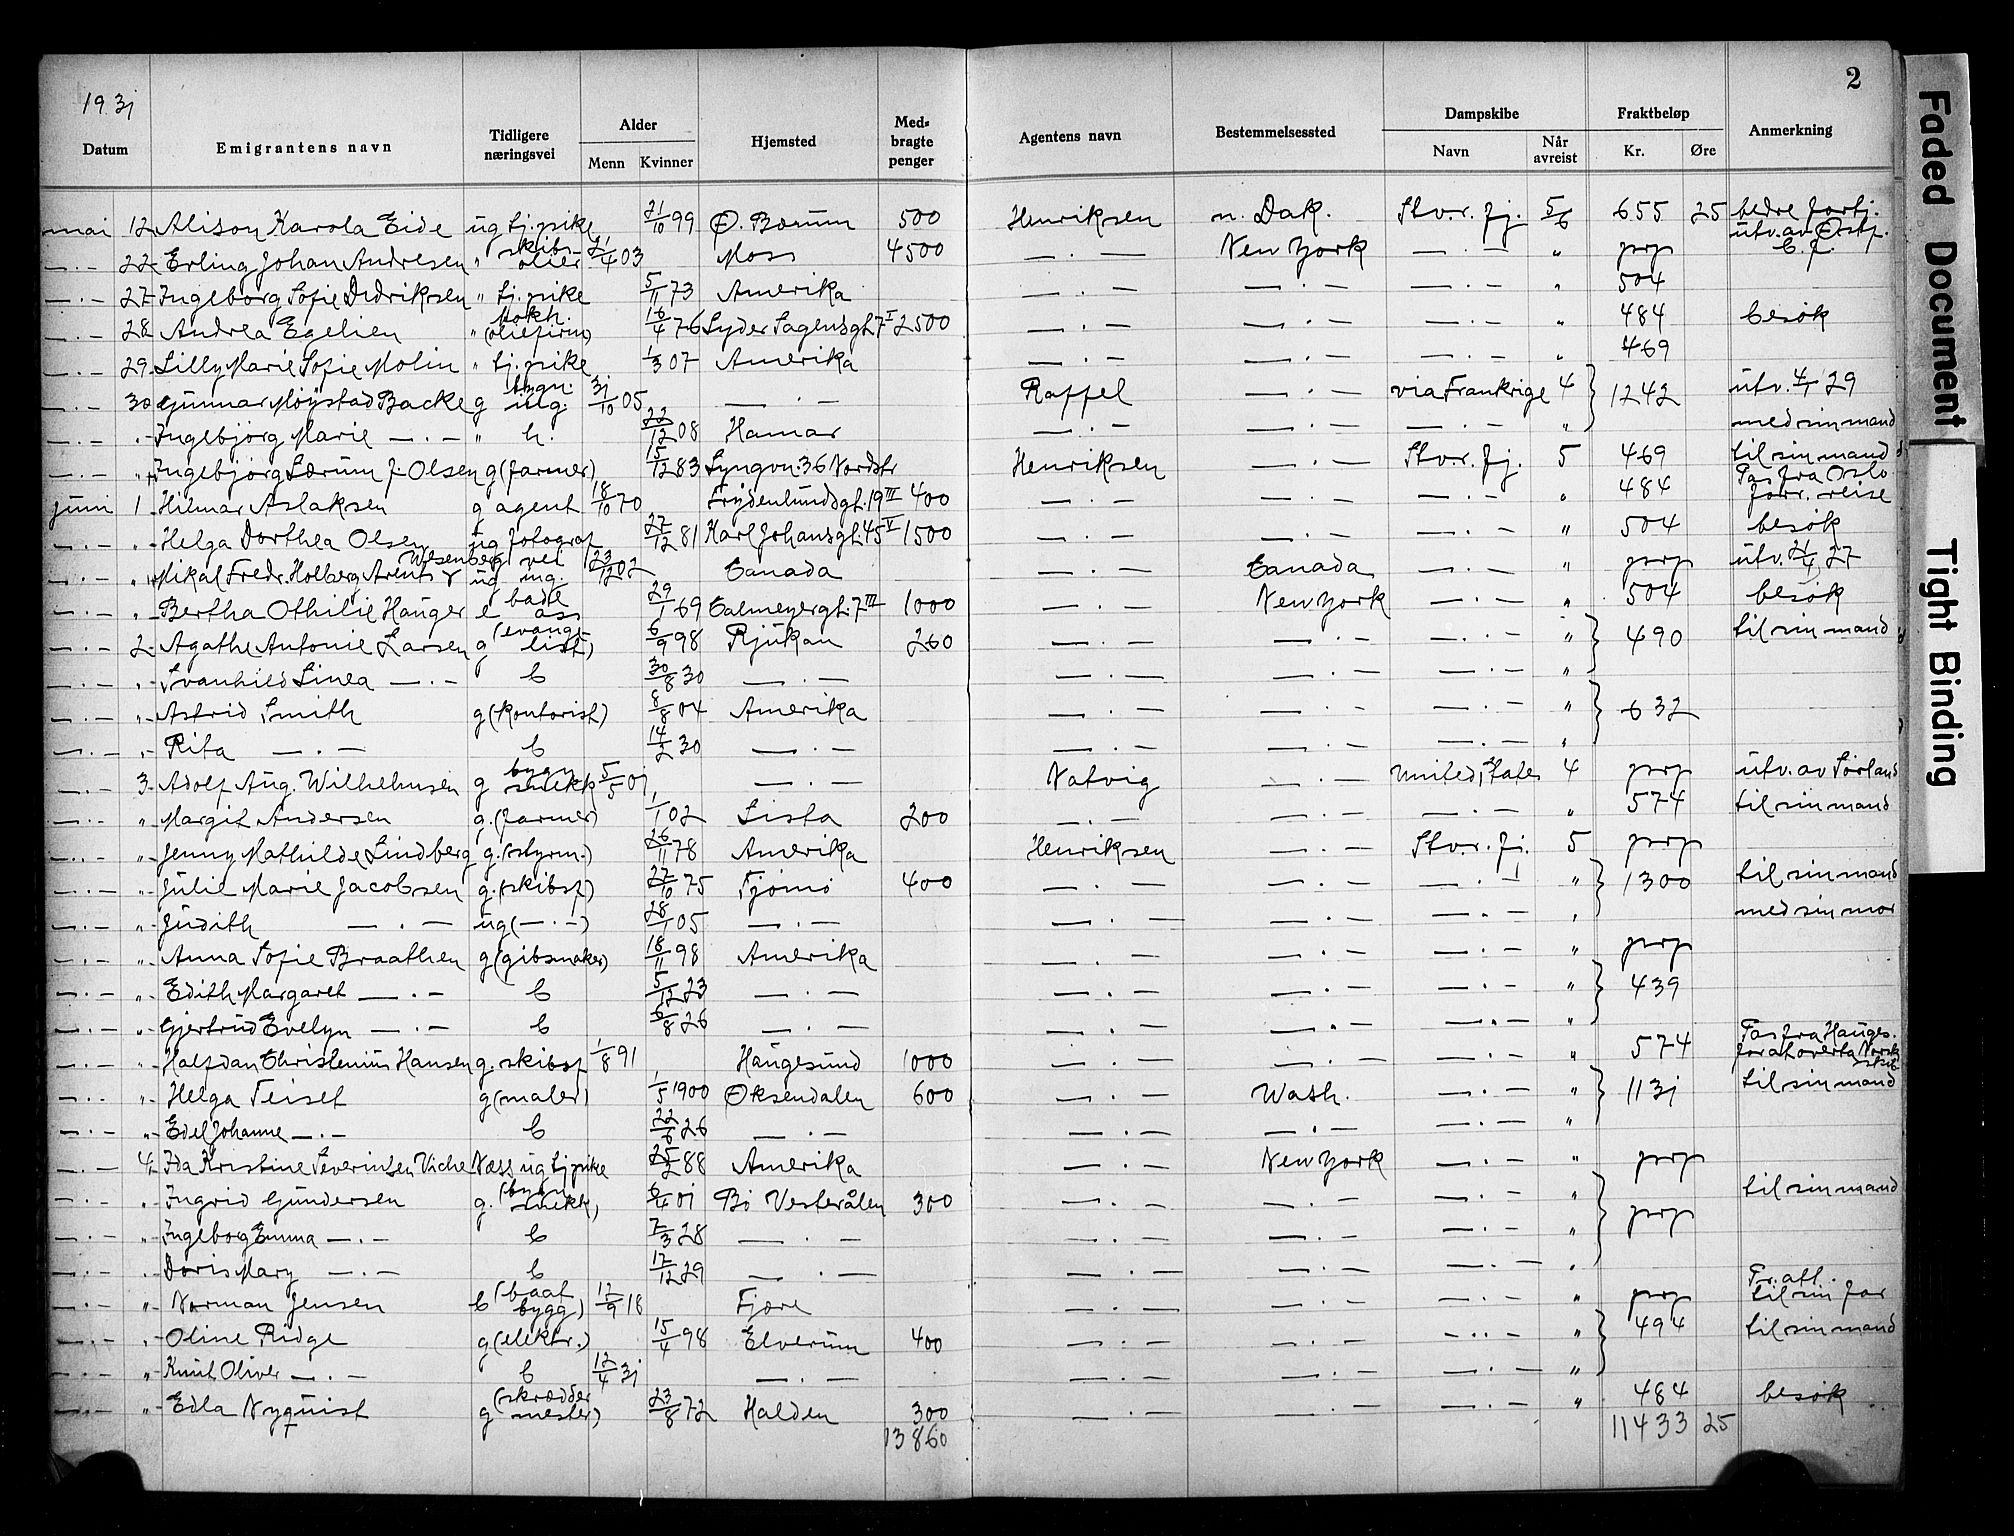 2
19 31
Datum Emigrantens navn Tidligere næringsvei Alder Menn Kvinner Hjemsted Med-bragte penger Agentens navn Bestemmelsessted Dampskibe Navn Når avreist Fraktbeløp Kr. Øre Anmerkning
mai 12 Alison Karola Eide ug tj. pike 21/10 99 Ø. Bærum 500 Henriksen n. Dak. Stv.r.fj. 5/6 655 25 bedre fortj.
—.— 22 Erling Johan Andresen " skibs- olier 21/4 03 Moss 4500 —.— New York —.— " prp utv. av Østf. E. f.
—.— 27 Ingeborg Sofie Didriksen " tj. pike 5/11 73 Amerika —.— —.— —.— " 504
—.— 28 Andrea Egelien " (oliefirm) 16/4 76 Lyder Sagensgt. 7 I 2500 —.— —.— —.— " 484 besøk
—.— 29 Lilly Marie Sofie Molin " tj. pike 1/3 07 Amerika —.— —.— —.— " 469
—.— 30 Gunnar Møystad Backe g bygn. ing. 31/10 05 —.— Raffel —.— via Frankrige 4 } 1242 utv. 4/1 29
—.— " Ingebjørg Marie —.— " h. 22/12 08 Hamar —.— —.— —.— " med sin mand
—.— " Ingebjørg Lærum f. Olsen g (farmer) 15/12 83 Lyngvn. 36 Nordstr Henriksen —.— Stv.r.fj. 5 469 til sin mand
juni 1 Hilmar Aslaksen g agent 18/10 70 Frydenlundsgt. 19 III 400 —.— —.— —.— " 484 Pas fra Oslo forr. reise
—.— " Helga Dorthea Olsen ug fotograf 27/12 81 Karl Johansgt. 45 V 1500 —.— —.— —.— " 504 besøk
—.— " Mikal Fredr. Holberg Arentz Wesenberg ug vei ing. 23/12 02 Canada —.— Canada —.— " prp utv. 21/4 27
—.— " Bertha Othilie Hauger e bade ass 29/1 69 Calmeyergt. 7 III 1000 —.— New York —.— " 504 besøk
—.— 2 Agathe Antonie Larsen g (evange- list) 6/9 98 Rjukan 260 —.— —.— —.— " } 490 til sin mand
—.— " Svanhild Linea —.— b 30/8 30 —.— —.— —.— —.— "
—.— " Astrid Smith g (kontorist) 8/8 04 Amerika —.— —.— —.— " } 632
—.— " Rita —.— b 14/2 30 —.— —.— —.— —.— "
—.— 3 Adolf Aug. Wilhelmsen g bygn. snekk 5/5 01 —.— Natvig —.— United States 4 prp utv. av Sørland
—.— " Margit Andersen g. (farmer) 1/1 02 Lista 200 —.— —.— —.— " 574 til sin mand
—.— " Jenny Mathilde Lindberg g. (styrm.) 26/11 78 Amerika Henriksen —.— Stv.r.fj. 5 prp
—.— " Julie Marie Jacobsen g. (skibsf) 27/10 75 Tjømø 400 —.— —.— —.— " } 1300 til sin mand
—.— " Judith —.— ug (—.—) 28/1 05 —.— —.— —.— —.— " med sin mor
—.— " Anna Sofie Braathen g (gibsmaker) 18/11 98 Amerika —.— —.— —.— " prp
—.— " Edith Margaret —.— b 5/12 23 —.— —.— —.— —.— " } 439
—.— " Gjertrud Evelyn —.— b 6/8 26 —.— —.— —.— —.— "
—.— " Halfdan Christenius Hansen g. skibsf 1/8 91 Haugesund 1000 —.— —.— —.— " 574 Pas fra Hauges. for at overta Norsk skib
—.— " Helga Teiset g (maler) 1/5 1900 Øksendalen 600 —.— Wash. —.— " } 1131 til sin mand
—.— " Edel Johanne —.— b 22/6 26 —.— —.— —.— —.— "
—.— 4 Ida Kristine Severinsen Viche Næss ug tj pike 25/2 88 Amerika —.— New York —.— " prp
—.— " Ingrid Gundersen g. (bygn. snekk) 6/4 01 Bø Vesterålen 300 —.— —.— —.— " } prp til sin mand
—.— " Ingeborg Emma —.— b 7/3 28 —.— —.— —.— —.— "
—.— " Doris Mary —.— b 17/12 29 —.— —.— —.— —.— "
—.— " Norman Jensen b (baat bygg) 17/9 18 Fjære —.— —.— —.— " prp Fr. att. til sin far
—.— " Oline Ridge g (elektr.) 15/4 98 Elverum 400 —.— —.— —.— " } 494 til sin mand
—.— " Knut Oliver —.— b 12/4 31 —.— —.— —.— —.— "
—.— " Edla Nyquist g (skrædder mester) 23/8 72 Halden 300 —.— —.— —.— " 484 besøk
13860 11433 25
Faded Document
Tight Binding